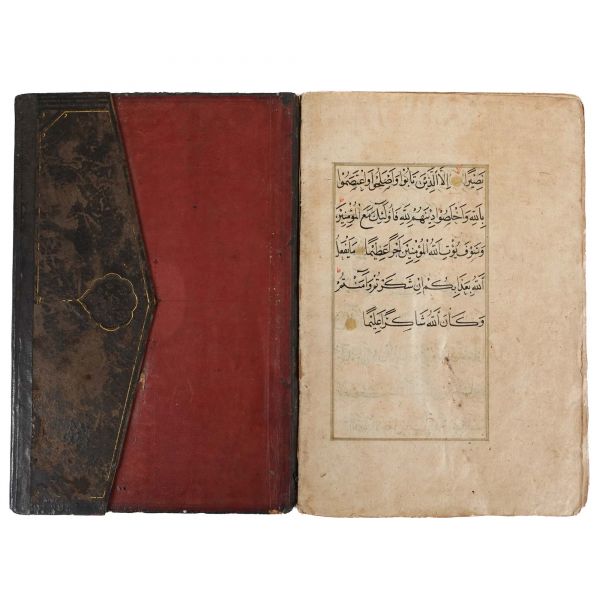 نَصِيرًا إِلَّا الَّذِينَ تَابُوا وَأَصْلَحُوا وَاعْتَصَمُوا
بِاللَّهِ وَأَخْلَصُوا دِينَهُمْ لِلَّهِ فَأُولَٰئِكَ مَعَ الْمُؤْمِنِينَ
وَسَوْفَ يُؤْتِ اللَّهُ الْمُؤْمِنِينَ أَجْرًا عَظِيمًا مَا يَفْعَلُ
اللَّهُ بِعَذَابِكُمْ إِنْ شَكَرْتُمْ وَآمَنْتُمْ
وَكَانَ اللَّهُ شَاكِرًا عَلِيمًا